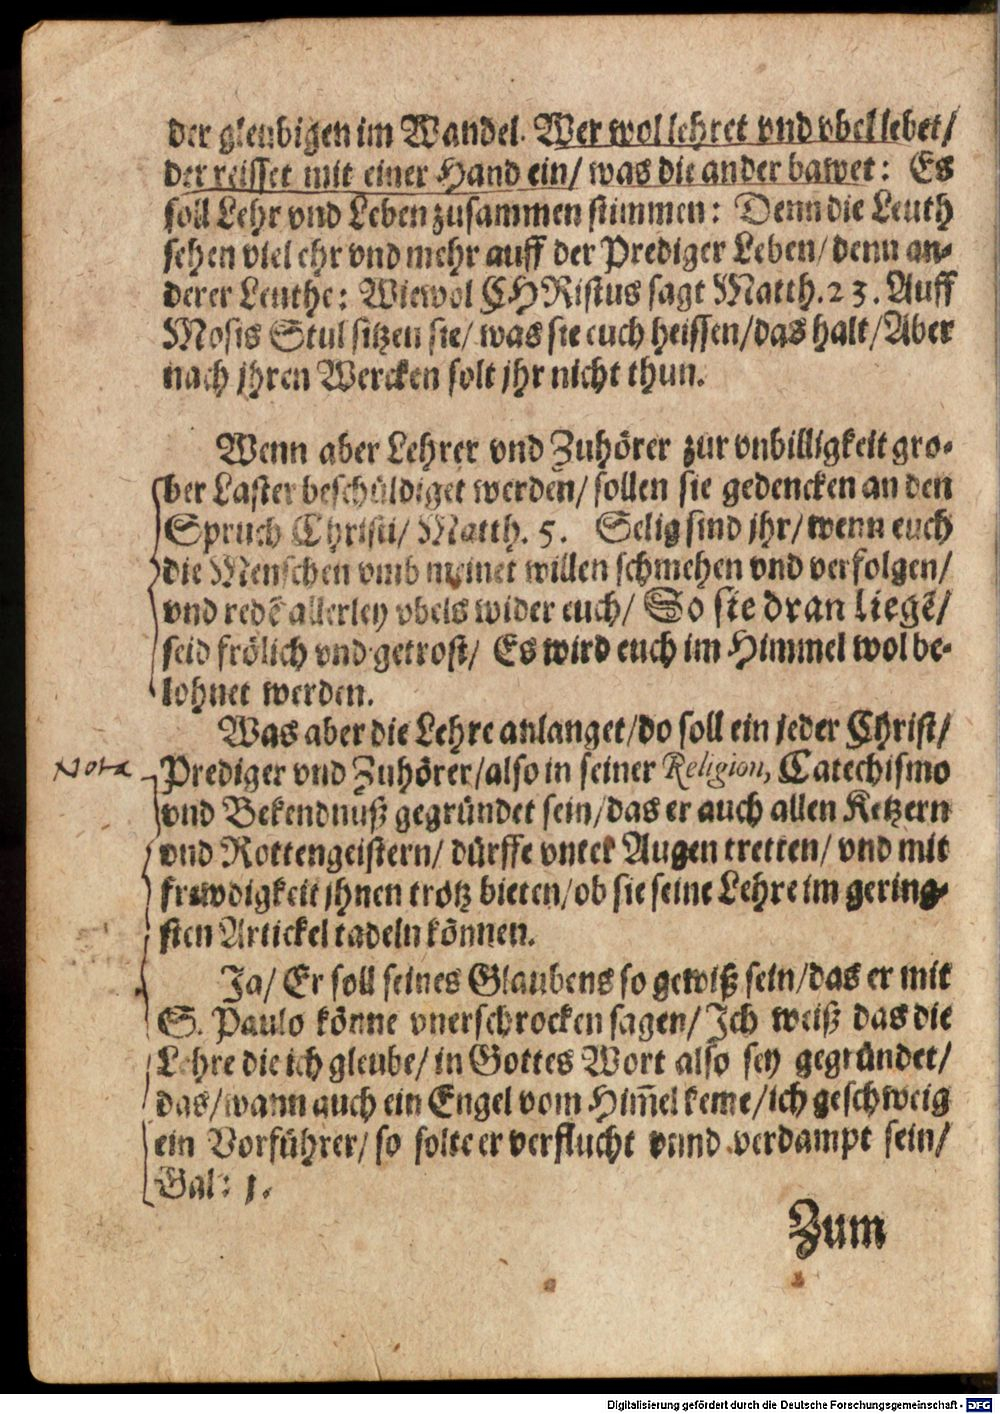 der gleubigen im Wandel. Wer wol lehret vnd vbel lebet/
der reisset mit einer Hand ein/ was die ander bawet: Es
soll Lehr vnd Leben zusammen stimmen: Denn die Leuth
sehen viel ehr vnd mehr auff der Prediger Leben/ denn an-
derer Leuthe: Wiewol CHRistus sagt Matth. 23. Auff
Mosis Stul sitzen sie/ was sie euch heissen/ das halt/ Aber
nach jhren Wercken solt jhr nicht thun.
Wenn aber Lehrer vnd Zuhörer zur vnbilligkeit gro-
ber Laster beschüldiget werden/ sollen sie gedencken an den
Spruch Christi/ Matth. 5. Selig sind jhr/ wenn euch
die Menschen vmb meinet willen schmehen vnd verfolgen/
vnd redẽ allerley vbels wider euch/ So sie dran liegẽ/
seid frölich vnd getrost/ Es wird euch im Himmel wol be-
lohnet werden.
Was aber die Lehre anlanget/ do soll ein jeder Christ/
Nota
Prediger vnd Zuhörer/ also in seiner Religion, Catechismo
vnd Bekendnuß gegründet sein/ das er auch allen Ketzern
vnd Rottengeistern/ dürffe vnter Augen tretten/ vnd mit
frewdigkeit jhnen trotz bieten/ ob sie seine Lehre im gering-
sten Artickel tadeln können.
Ja/ Er soll seines Glaubens so gewiß sein/ das er mit
S. Paulo könne vnerschrocken sagen/ Jch weiß das die
Lehre die ich gleube/ in Gottes Wort also sey gegründet/
das/ wann auch ein Engel vom Him̃el keme/ ich geschweig
ein Vorführer/ so solte er verflucht vnnd verdampt sein/
Gal: 1.
Zum
Digitalisierung gefördert durch die Deutsche Forschungsgemeinschaft - DFG